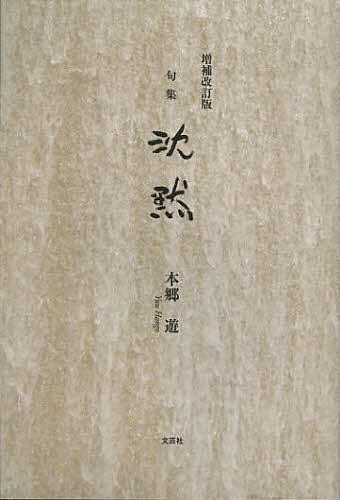 増補改訂版
句集
沈黙
本郷 遊
Yuu Hongo
文芸社